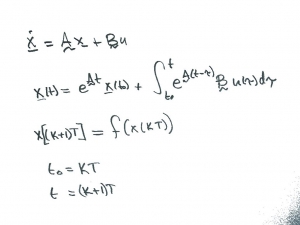 ẋ = A x + B u
x(t) = e^{At} x(t₀) + ∫_{t₀}^{t} e^{A(t-τ)} B u(τ) dτ
x[(k+1)T] = f(x(kT))
t₀ = kT
t = (k+1)T